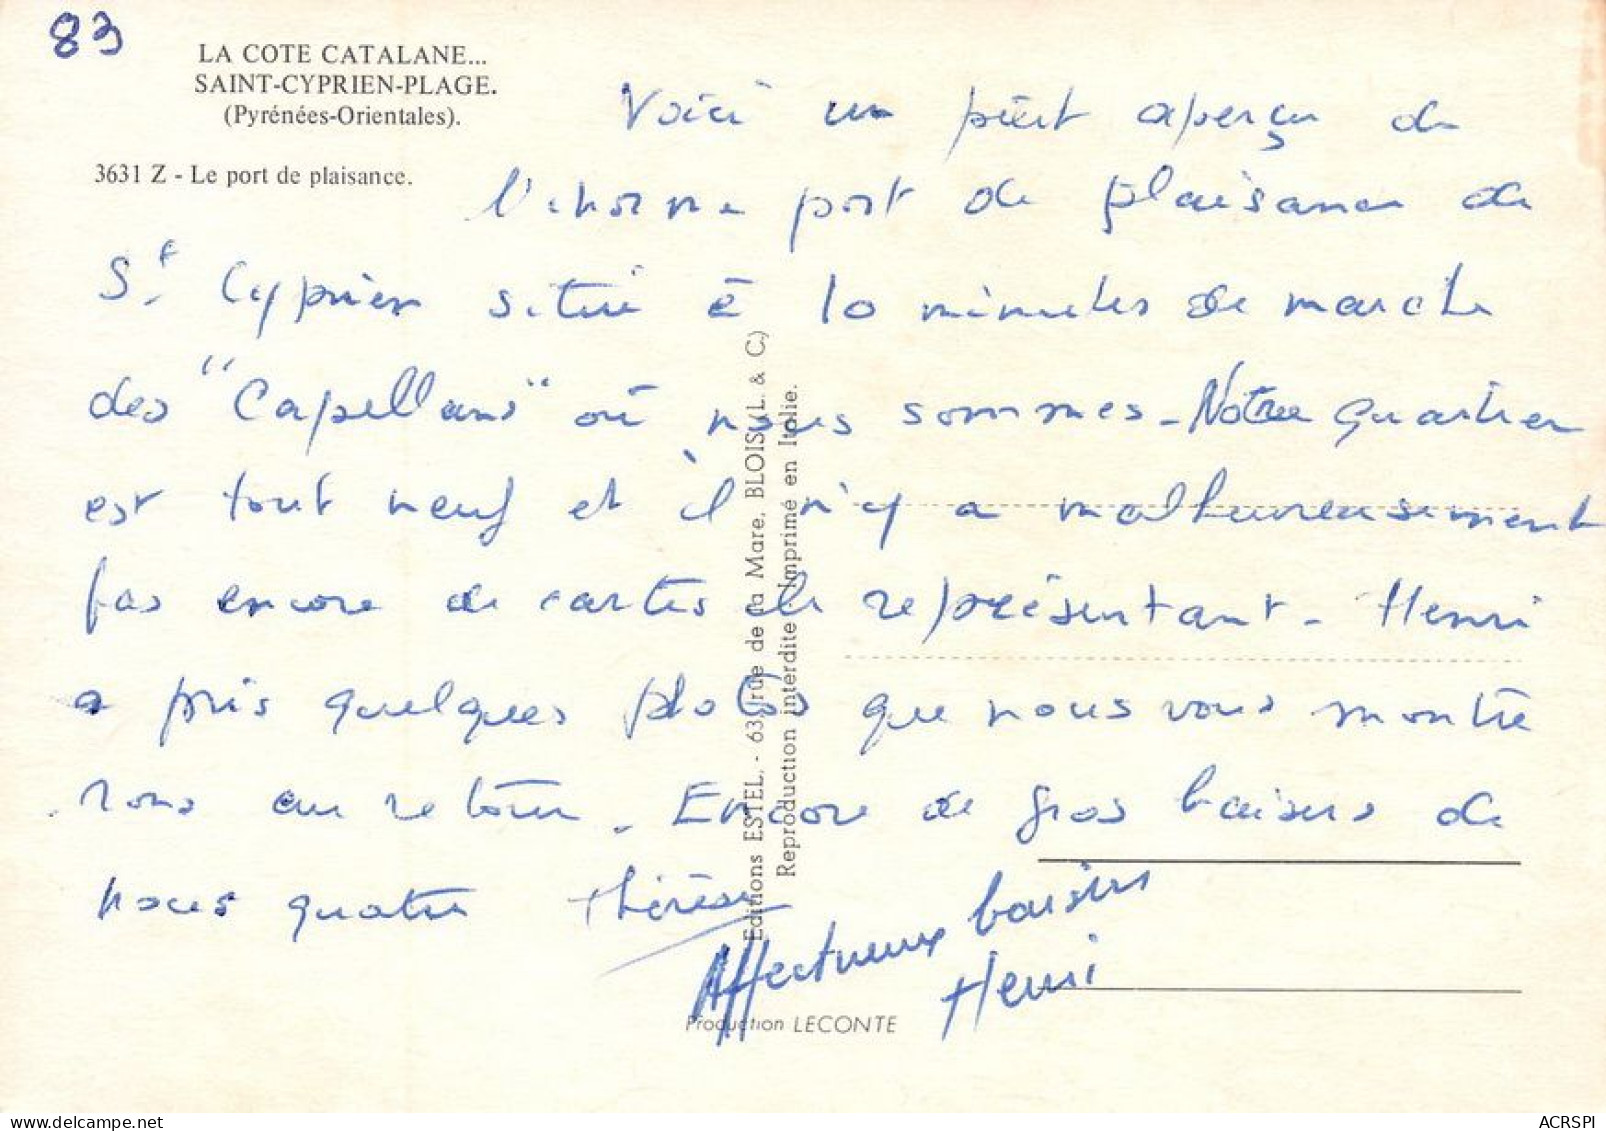 83
LA COTE CATALANE...
SAINT-CYPRIEN-PLAGE.
(Pyrénées-Orientales).
3631 Z - Le port de plaisance.
Voici un petit aperçu de
l'énorme port de plaisance de
St Cyprien situé à 10 minutes de marche
des "Capellans" où nous sommes - Notre quartier
est tout neuf et il n'y a malheureusement
pas encore de cartes le représentant - Henri
a pris quelques photos que nous vous montre
rons au retour. Encore de gros baisers de
nous quatre Thérèse
Affectueux baisers
Henri
Editions ESTEL. - 63, rue de la Mare, BLOIS (L. & C.)
Reproduction interdite - Imprimé en Italie.
Production LECONTE
ACRSPI